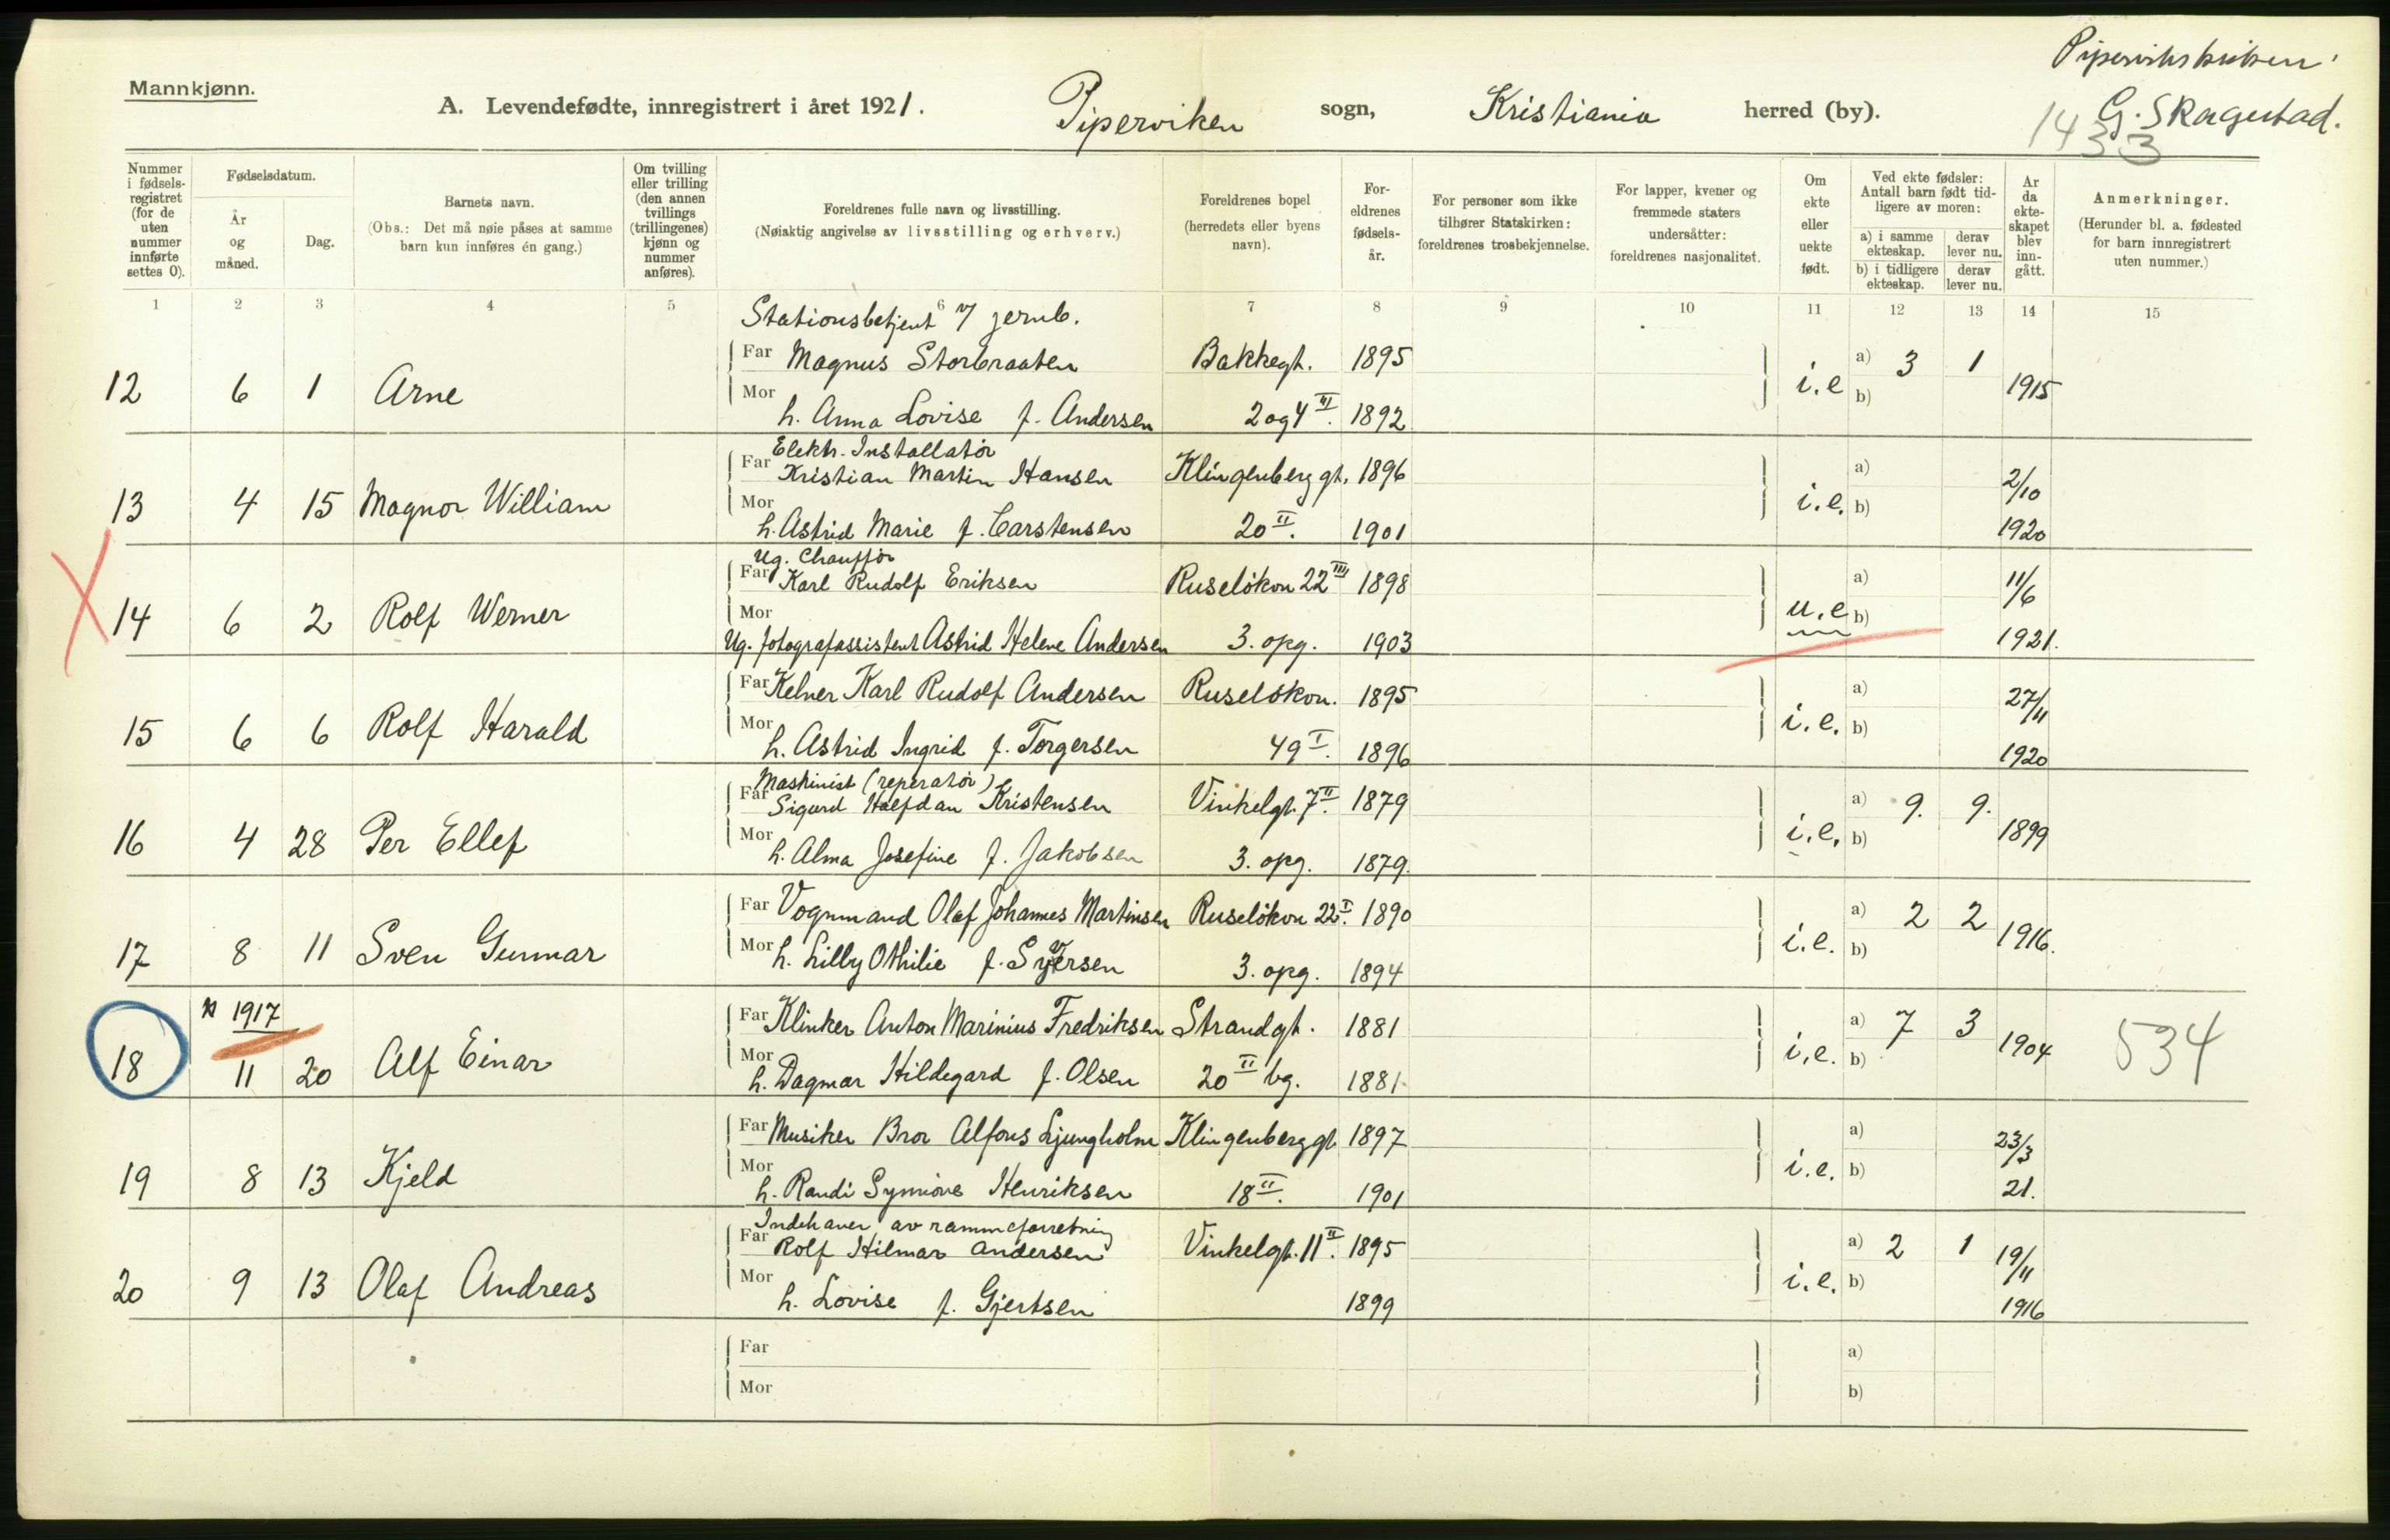 Mannkjønn.
A. Levendefødte, innregistrert i året 1921. Piperviken sogn, Kristiania herred (by).
G. Skagestad.
1433
Nummer i fødsels-registret (for de uten nummer innførte settes 0).
Fødselsdatum.
År og måned.
Dag.
Barnets navn.
(Obs.: Det må nøie påses at samme barn kun innføres én gang.)
Om tvilling eller trilling (den annen tvillings (trillingenes) kjønn og nummer anføres).
Foreldrenes fulle navn og livsstilling.
(Nøiaktig angivelse av livsstilling og erhverv.)
Foreldrenes bopel
(herredets eller byens navn).
For-eldrenes fødsels-år.
For personer som ikke tilhører Statskirken: foreldrenes trosbekjennelse.
For lapper, kvener og fremmede staters undersåtter: foreldrenes nasjonalitet.
Om ekte eller uekte født.
Ved ekte fødsler: Antall barn født tid-ligere av moren:
a) i samme ekteskap.
derav lever nu.
b) i tidligere ekteskap.
derav lever nu.
År da ekte-skapet blev inn-gått.
Anmerkninger.
(Herunder bl. a. fødested for barn innregistrert uten nummer.)
1 2 3 4 5 6 7 8 9 10 11 12 13 14 15
Stationsbetjent v/ jernb.
Far Magnus Storbraaten Bakkegt. 1895 a) 3 1
12 6 1 Arne i.e 1915
Mor h. Anna Lovise f. Andersen 2 og 4 VI. 1892 b)
Elektr. Installatør
Far Kristian Martin Hansen Klingenberggt. 1896 a) 2/10
13 4 15 Magnor William i.e.
Mor h. Astrid Marie f. Carstensen 20 II. 1901 b) 1920
Ug. Chauffør
Far Karl Rudolf Eriksen Ruseløkvn 22 III 1898 a) 11/6
X 14 6 2 Rolf Werner u.e
Mor Ug. fotografassistent Astrid Helene Andersen 3. opg. 1903 b) 1921.
Far Kelner Karl Rudolf Andersen Ruseløkvn. 1895 a) 27/11
15 6 6 Rolf Harald i.e.
Mor h. Astrid Ingrid f. Torgersen 49 I. 1896 b) 1920
Maskinist (reperatør)
Far Sigurd Halfdan Kristensen Vinkelgt. 7 II. 1879 a) 9. 9.
16 4 28 Per Ellef i.e. 1899
Mor h. Alma Josefine f. Jakobsen 3. opg. 1879. b)
Far Vognmand Olaf Johannes Martinsen Ruseløkvn 22 I. 1890 a) 2 2
17 8 11 Sven Gunnar i.e. 1916.
Mor h. Lilly Othilie f. Syversen 3. opg. 1894 b)
1917
Far Klinker Anton Marinius Fredriksen Strandgt. 1881 a) 7 3
18 11 20 Alf Einar i.e. 1904 534
Mor h. Dagmar Hildegard f. Olsen 20 II bg. 1881 b)
Far Musiker Bror Alfons Ljungholm Klingenberggt 1897 a) 23/3
19 8 13 Kjeld i.e.
Mor h. Randi Synnøve Henriksen 18 II. 1901 b) 21.
Indehaver av rammeforretning
Far Rolf Hilmar Andersen Vinkelgt. 11 II. 1895 a) 2 1 19/11
20 9 13 Olaf Andreas i.e.
Mor h. Lovise f. Gjertsen 1899 b) 1916
Far a)
Mor b)